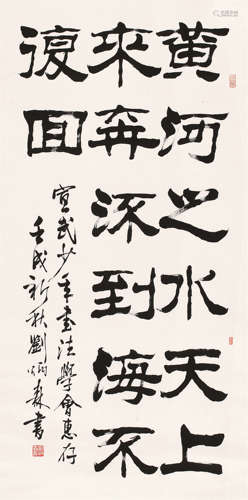 黄河之水天上
來奔涿到海不
復回
宣武少年書法學會惠存
壬戌新秋劉炳森書